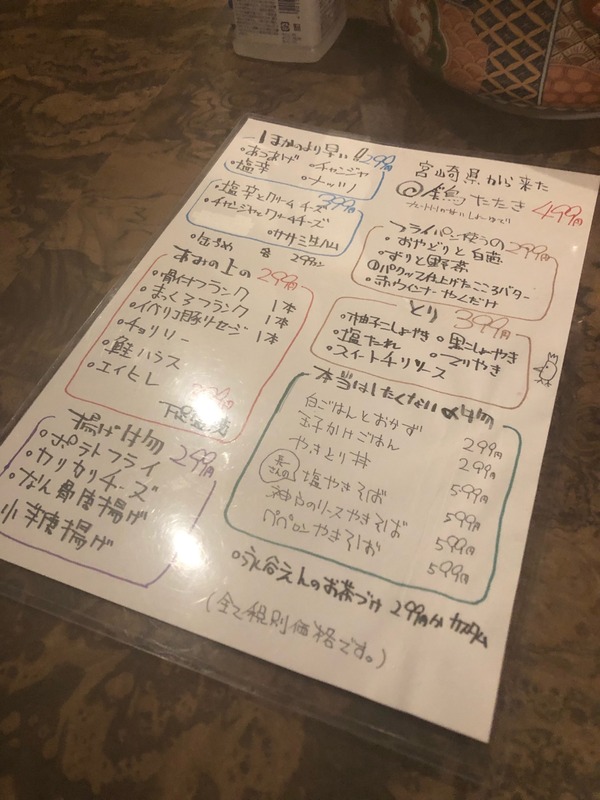 より早い!! 299円
・あつあげ ・チャンジャ
・塩辛 ・ナッツ
399円
・塩辛とクリームチーズ
・チャンジャとクリームチーズ
・ササミ生ハム
・缶づめ 各 299円
あみの上の 299円
・骨付フランク 1本
・まっくろフランク 1本
・イベリコ豚ソーセージ 1本
・チョリソー
・鮭ハラス
・エイヒレ
揚げ物 299円
・ポテトフライ
・カリカリチーズ
・なん骨唐揚げ
唐揚げ
宮崎県から来た
鶏たたき 499円
フライパン使うの 299円
・おやどりと白葱
・ずりと野菜
パクッて仕上げたこころバター
・赤ウインナーやくだけ
とり 399円
・柚子こしょうやき ・黒こしょうやき
・塩たれ ・てりやき
・スイートチリソース
本当はしたくない〆物
白ごはんとおかず 299円
玉子かけごはん 299円
やきとり丼 599円
塩やきそば 599円
神戸のソースやきそば 599円
ペペロンやきそば 599円
・永谷えんのお茶づけ 299円 カスタム
(全て税別価格です。)